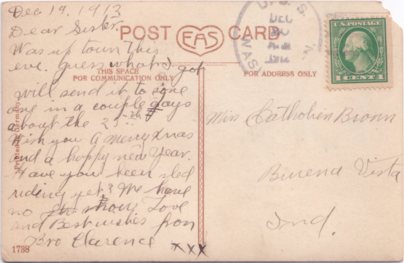 Dec 19, 1913
Dear Sister
Was up town this
eve. guess what I got
will send it to some
one in a couple days
about the 2
Wish you a Merry Xmas
and a happy new Year.
Have you been sled
riding yet? We have
no snow. Love
and Best wishes from
Bro Clarence
xxx
1738
POST CARD
EAS
THIS SPACE
FOR COMMUNICATION ONLY
FOR ADDRESS ONLY
U. S. S.
DEC
U.S. POSTAGE
1 CENT 1
Miss Brown
Buena Vista
Ind.